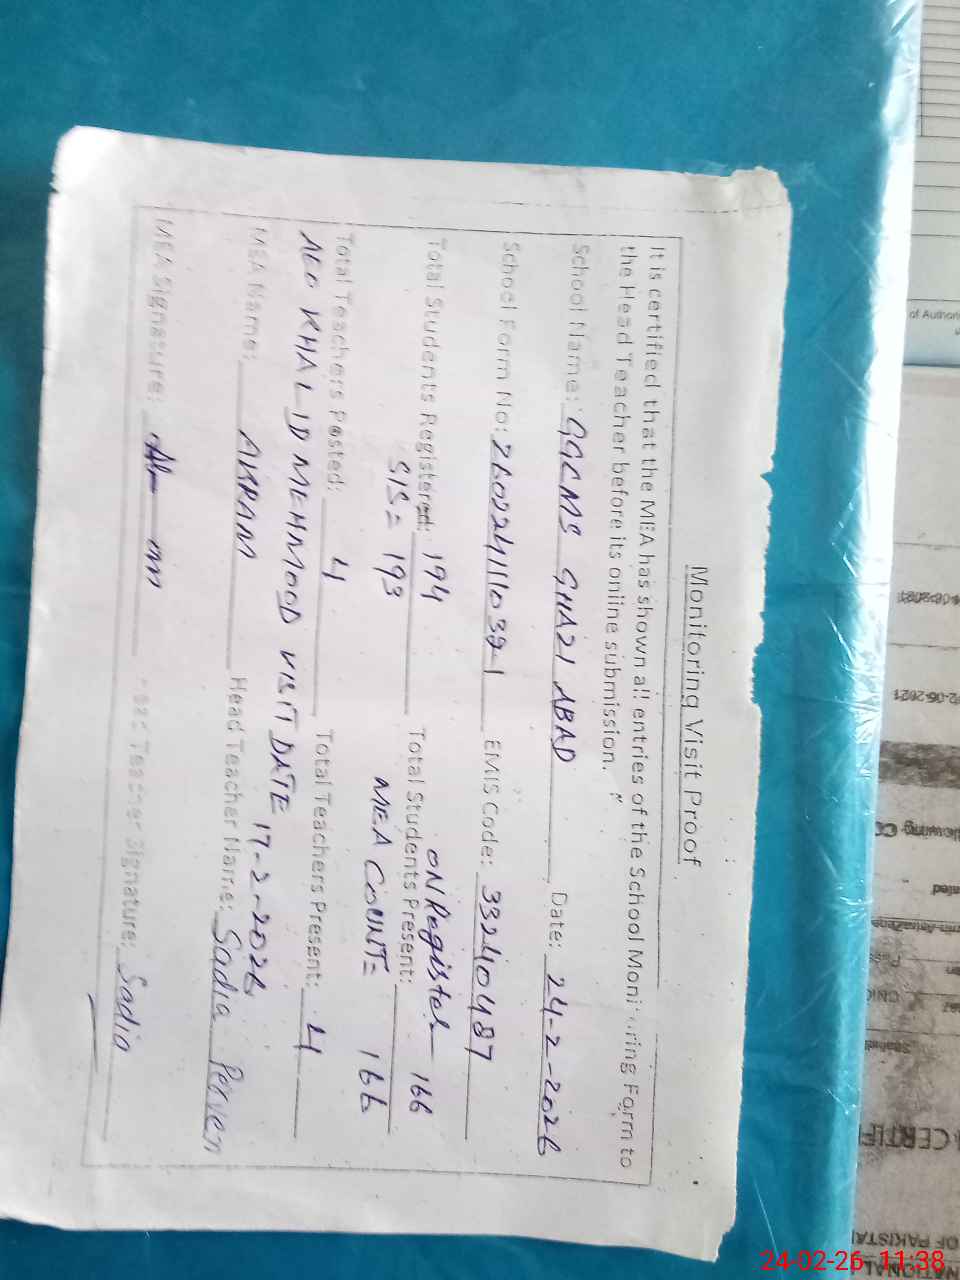 Monitoring Visit Proof
It is certified that the MEA has shown all entries of the School Monitoring Form to
the Head Teacher before its online submission.
School Name: GGCMS GHAZI ABAD Date: 24-2-2026
School Form No: EMIS Code: 33240487
Total Students Registered: 194 Total Students Present: ON Register 166
SIS = 193 MEA COUNT = 166
Total Teachers Posted: 4 Total Teachers Present: 4
AEO KHALID MEHMOOD VISIT DATE 17-2-2026
MEA Name: AKRAM Head Teacher Name: Sadia Perven
MEA Signature: Head Teacher Signature: Sadia
of Authori
02-06-2021
llowing CO
CNIC
CERTIFI
OF PAKISTA
NATIONAL
24-02-26 11:38